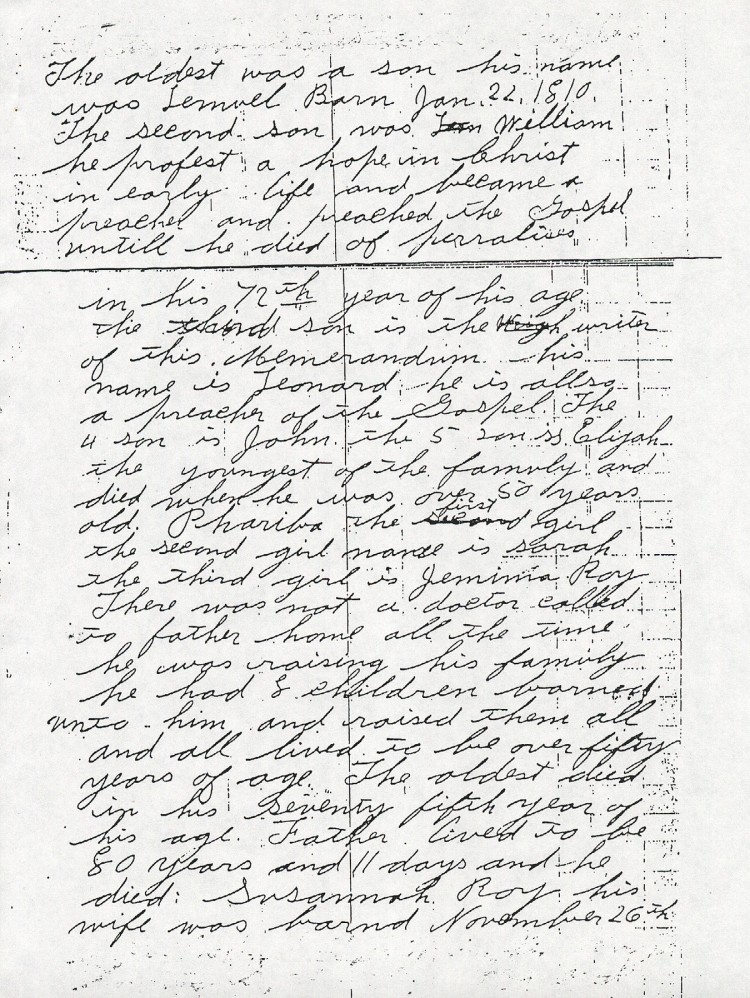 The oldest was a son his name
was Lemuel Barn Jan. 22, 1810.
The second son was William
he profest a hope in Christ
in early life and became a
preacher and preached the Gospel
untill he died of perralises
in his 72th year of his age
the third son is the writer
of this Memerandum his
name is Leonard he is allso
a preacher of the Gospel. The
4 son is John. the 5 son is Elijah
the youngest of the famuly and
died when he was over 50 years
old. Phariba the second first girl
the second girl name is Sarah
the third girl is Jemima Roy
There was not a doctor called
to father home all the time
he was raising his famuly
he had 8 children barned
unto him and raised them all
and all lived to be over fifty
years of age. The oldest died
in his seventy fifth year of
his age. Father lived to be
80 years and 11 days and he
died: Susannah Roy his
wife was barnd November 26th